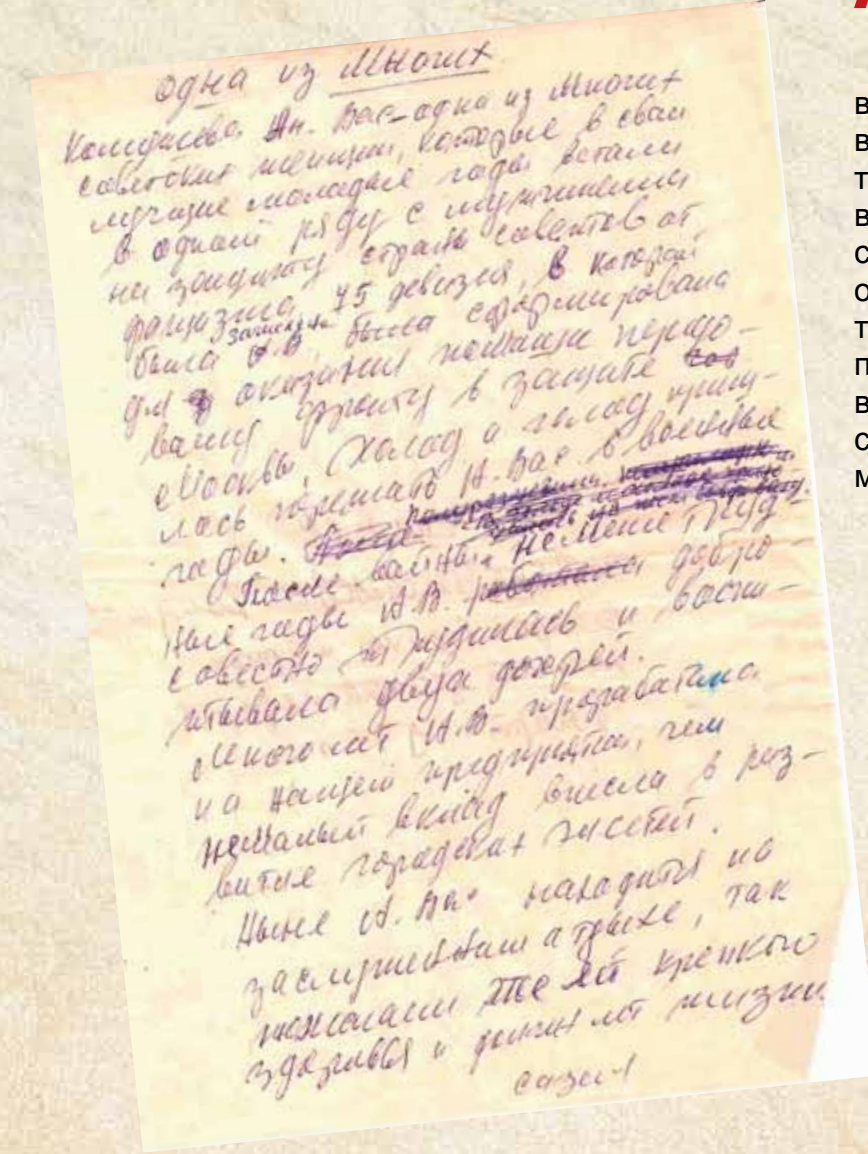 одна из Многих
Ан. Вас - одна из Многих
советских женщин, которые в свои
лучшие молодые годы встали
в один ряду с мужчинами
на защиту страны советов от
фашизма. 75 дивизия, в которой
зачислена
была А.В. была сформирована
для оказания помощи передо-
вому фронту в защите
Москвы. Холод и голод приш-
лось пережить А. Вас. в военные
годы.
После войны, не менее труд-
ные годы А.В. работала добро-
совестно трудилась и воспи-
тывала двух дочерей.
Много лет А.В. проработала
на нашем предприятии, чем
немалый вклад внесла в раз-
витие городских сетей.
Ныне А. Вас находится на
заслуженном отдыхе, так
пожелаем же ей крепкого
здоровья и долгих лет жизни.
в
в
т
в
с
о
т
п
в
с
м